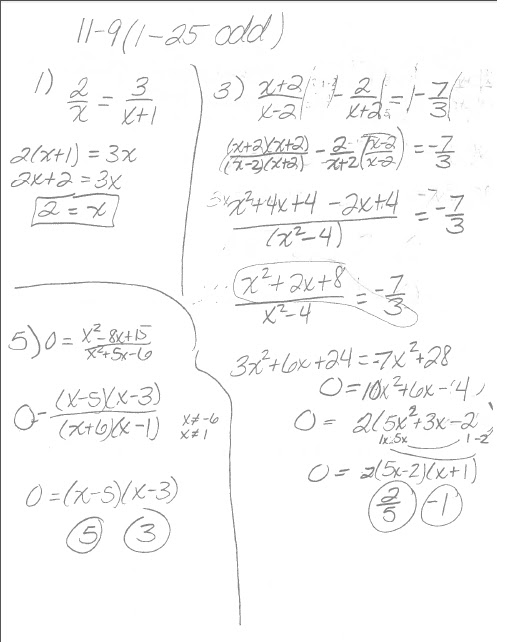 11-9 (1-25 odd)
1) 2/x = 3/x+1
2(x+1) = 3x
2x+2 = 3x
2 = x
3) x+2/x-2 - 2/x+2 = -7/3
(x+2)(x+2)/(x-2)(x+2) - 2/x+2 (x-2/x-2) = -7/3
x²+4x+4 -2x+4/(x²-4) = -7/3
x²+2x+8/x²-4 = -7/3
3x²+6x+24 = -7x²+28
0 = 10x²+6x-4
0 = 2(5x²+3x-2)
1x·5x 1-2
0 = 2(5x-2)(x+1)
2/5 -1
5) 0 = x²-8x+15/x²+5x-6
0 = (x-5)(x-3)/(x+6)(x-1) x≠-6
x≠1
0 = (x-5)(x-3)
5 3